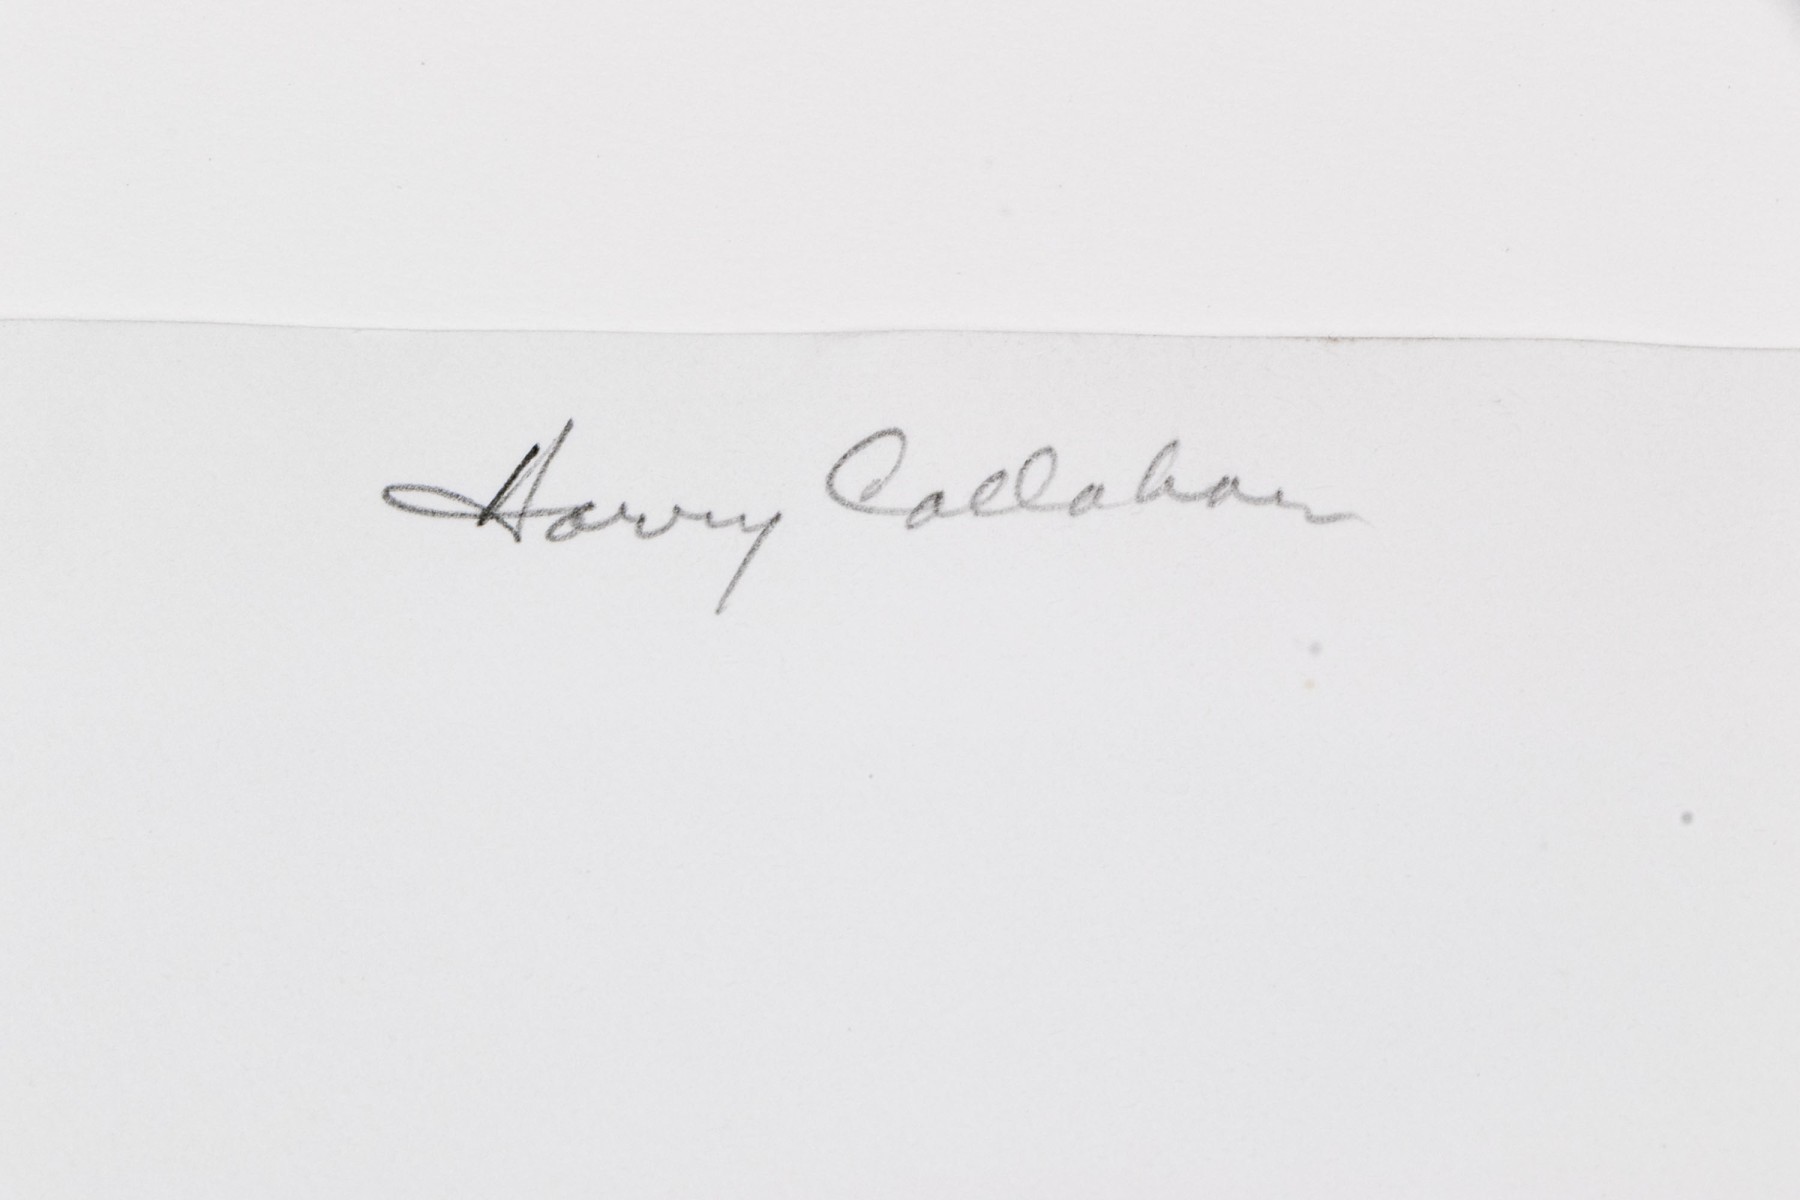 Harry Callahan